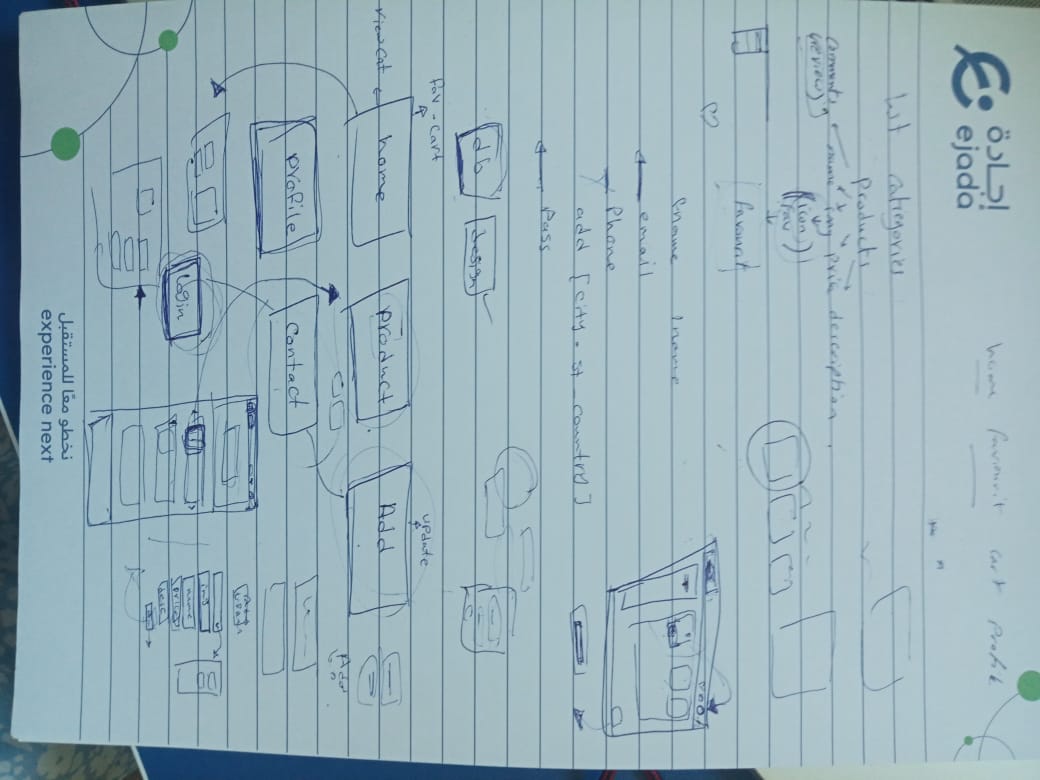 إجادة
ejada
home favourit cart profile
lst categories
products
comments name img price description
(review)
(icon
fav)
favourit
fname lname
email
Phone
add [city - st - country]
Pass
db design
fav - cart update
view cat home product Add
Add
profile contact
Add
update
img
name
price
desc
login
نخطو معًا للمستقبل
experience next